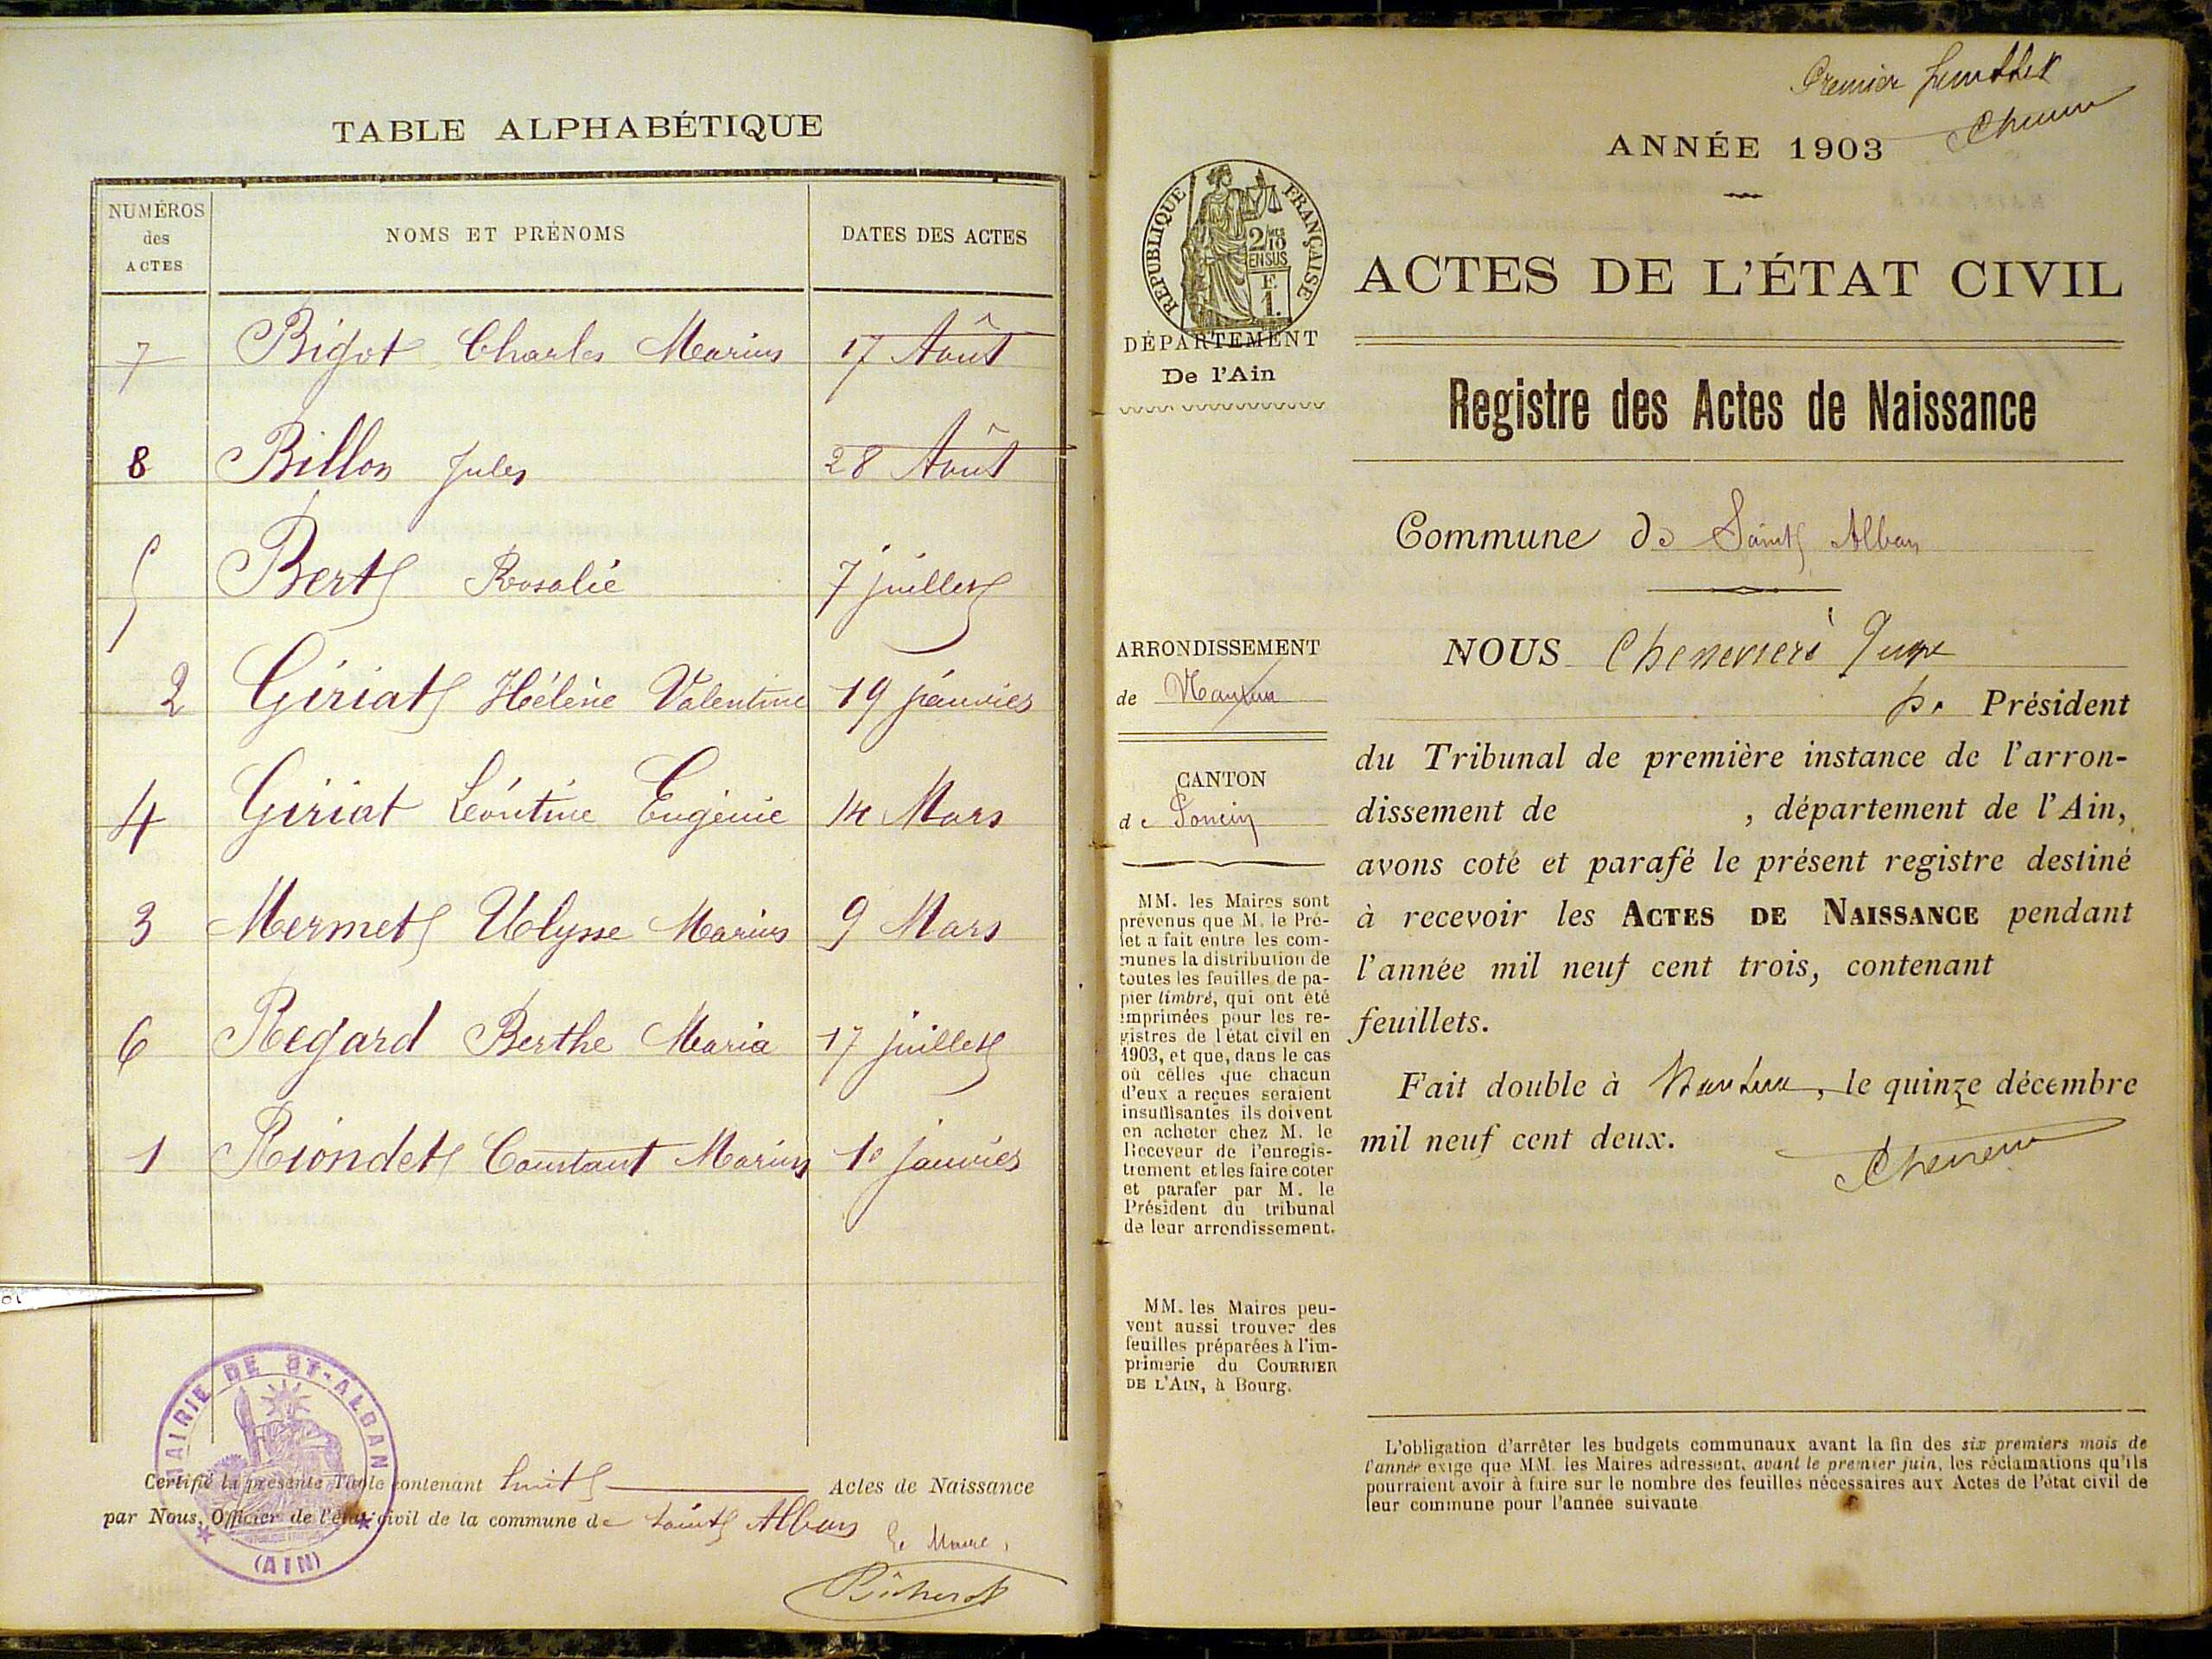 TABLE ALPHABÉTIQUE
NUMÉROS des ACTES NOMS ET PRÉNOMS DATES DES ACTES
7 Bigot Charles Marius 17 Août
8 Billon Jules 28 Août
5 Bert Rosalie 7 juillet
2 Giriat Hélène Valentine 19 janvier
4 Giriat Léontine Eugénie 14 Mars
3 Mermet Ulysse Marius 9 Mars
6 Regard Berthe Maria 17 juillet
1 Riondet Constant Marius 1e janvier
MAIRIE DE ST-ALBAN
(AIN)
Certifié la présente Table contenant huit Actes de Naissance
par Nous, Officier de l'état civil de la commune de Saint Alban
Le Maire,
Premier feuillet
ANNÉE 1903
RÉPUBLIQUE FRANÇAISE
2/10 EN SUS
F. 1.
ACTES DE L'ÉTAT CIVIL
DÉPARTEMENT
De l'Ain
Registre des Actes de Naissance
Commune de Saint Alban
ARRONDISSEMENT
de Nantua
CANTON
de Poncin
MM. les Maires sont
prévenus que M. le Pré-
fet a fait entre les com-
munes la distribution de
toutes les feuilles de pa-
pier timbré, qui ont été
imprimées pour les re-
gistres de l'état civil en
1903, et que, dans le cas
où celles que chacun
d'eux a reçues seraient
insuffisantes ils doivent
en acheter chez M. le
Receveur de l'enregis-
trement et les faire coter
et parafer par M. le
Président du tribunal
de leur arrondissement.
MM. les Maires peu-
vent aussi trouver des
feuilles préparées à l'im-
primerie du COURRIER
DE L'AIN, à Bourg.
NOUS Juge
p. Président
du Tribunal de première instance de l'arron-
dissement de , département de l'Ain,
avons coté et parafé le présent registre destiné
à recevoir les ACTES DE NAISSANCE pendant
l'année mil neuf cent trois, contenant
feuillets.
Fait double à Nantua, le quinze décembre
mil neuf cent deux.
L'obligation d'arrêter les budgets communaux avant la fin des six premiers mois de
l'année exige que MM. les Maires adressent, avant le premier juin, les réclamations qu'ils
pourraient avoir à faire sur le nombre des feuilles nécessaires aux Actes de l'état civil de
leur commune pour l'année suivante